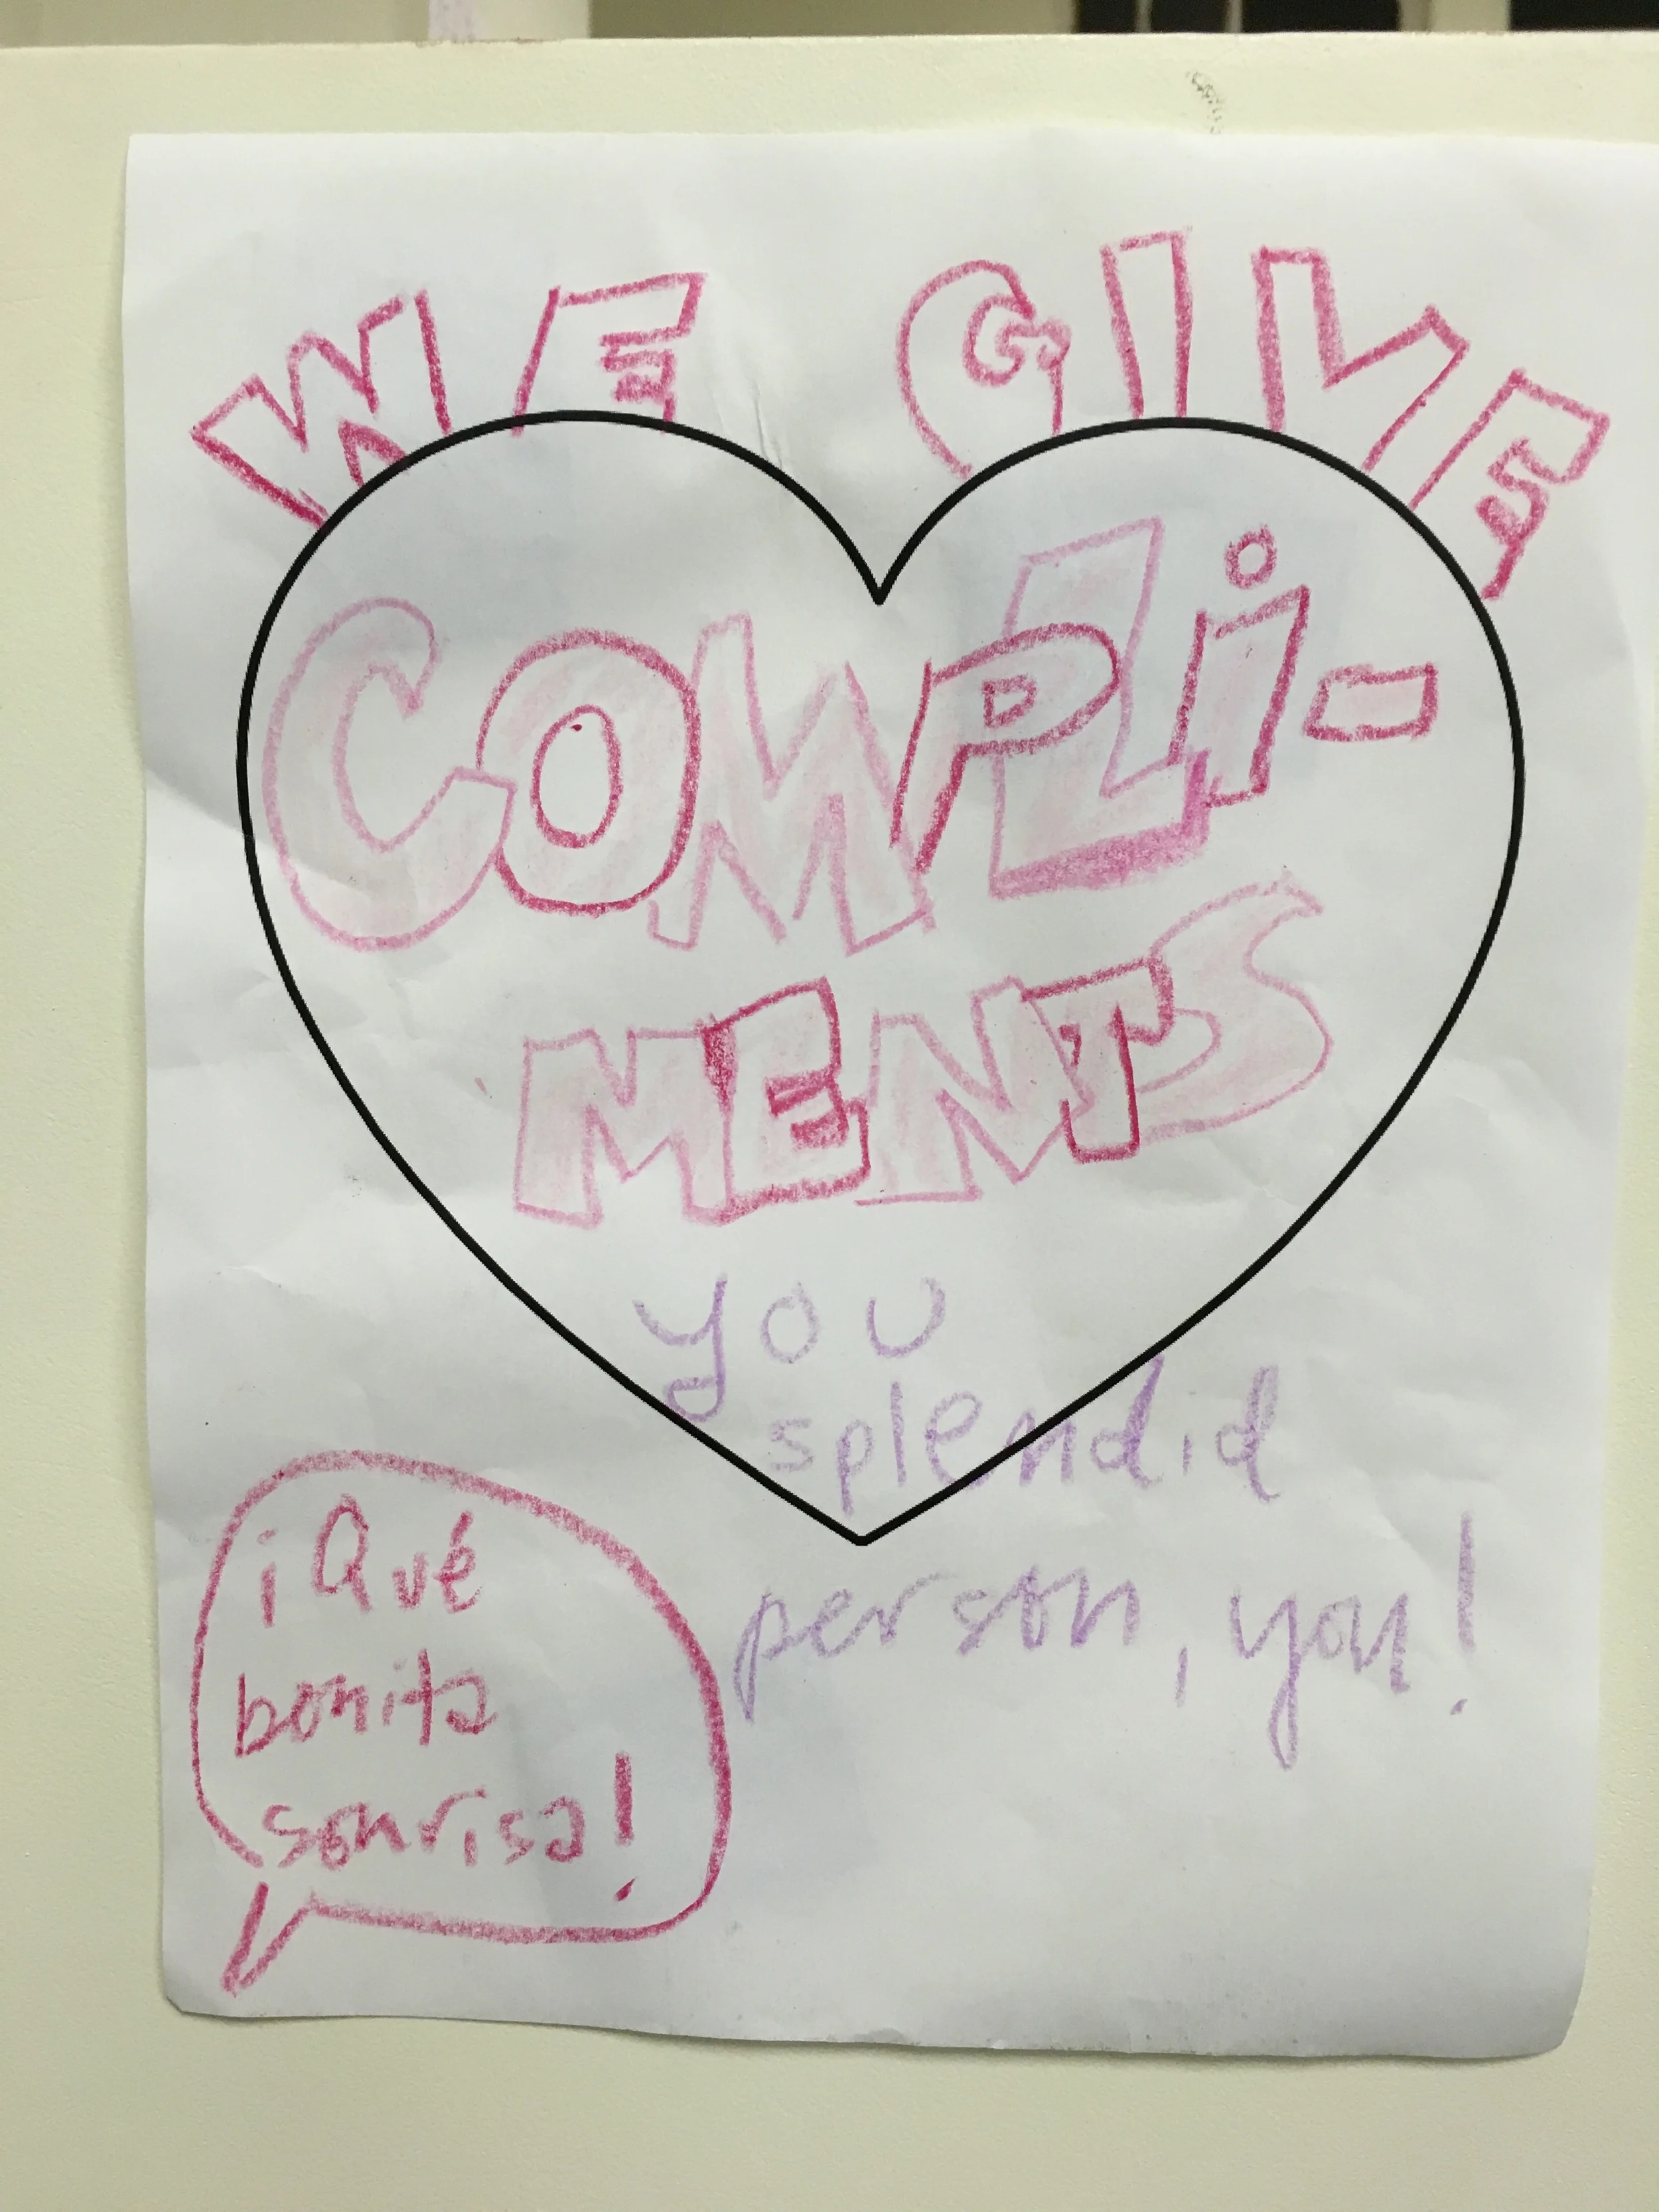 WE GIVE
COMPLi-
MENTS
you
splendid
person, you!
¡Qué
bonita
sonrisa!